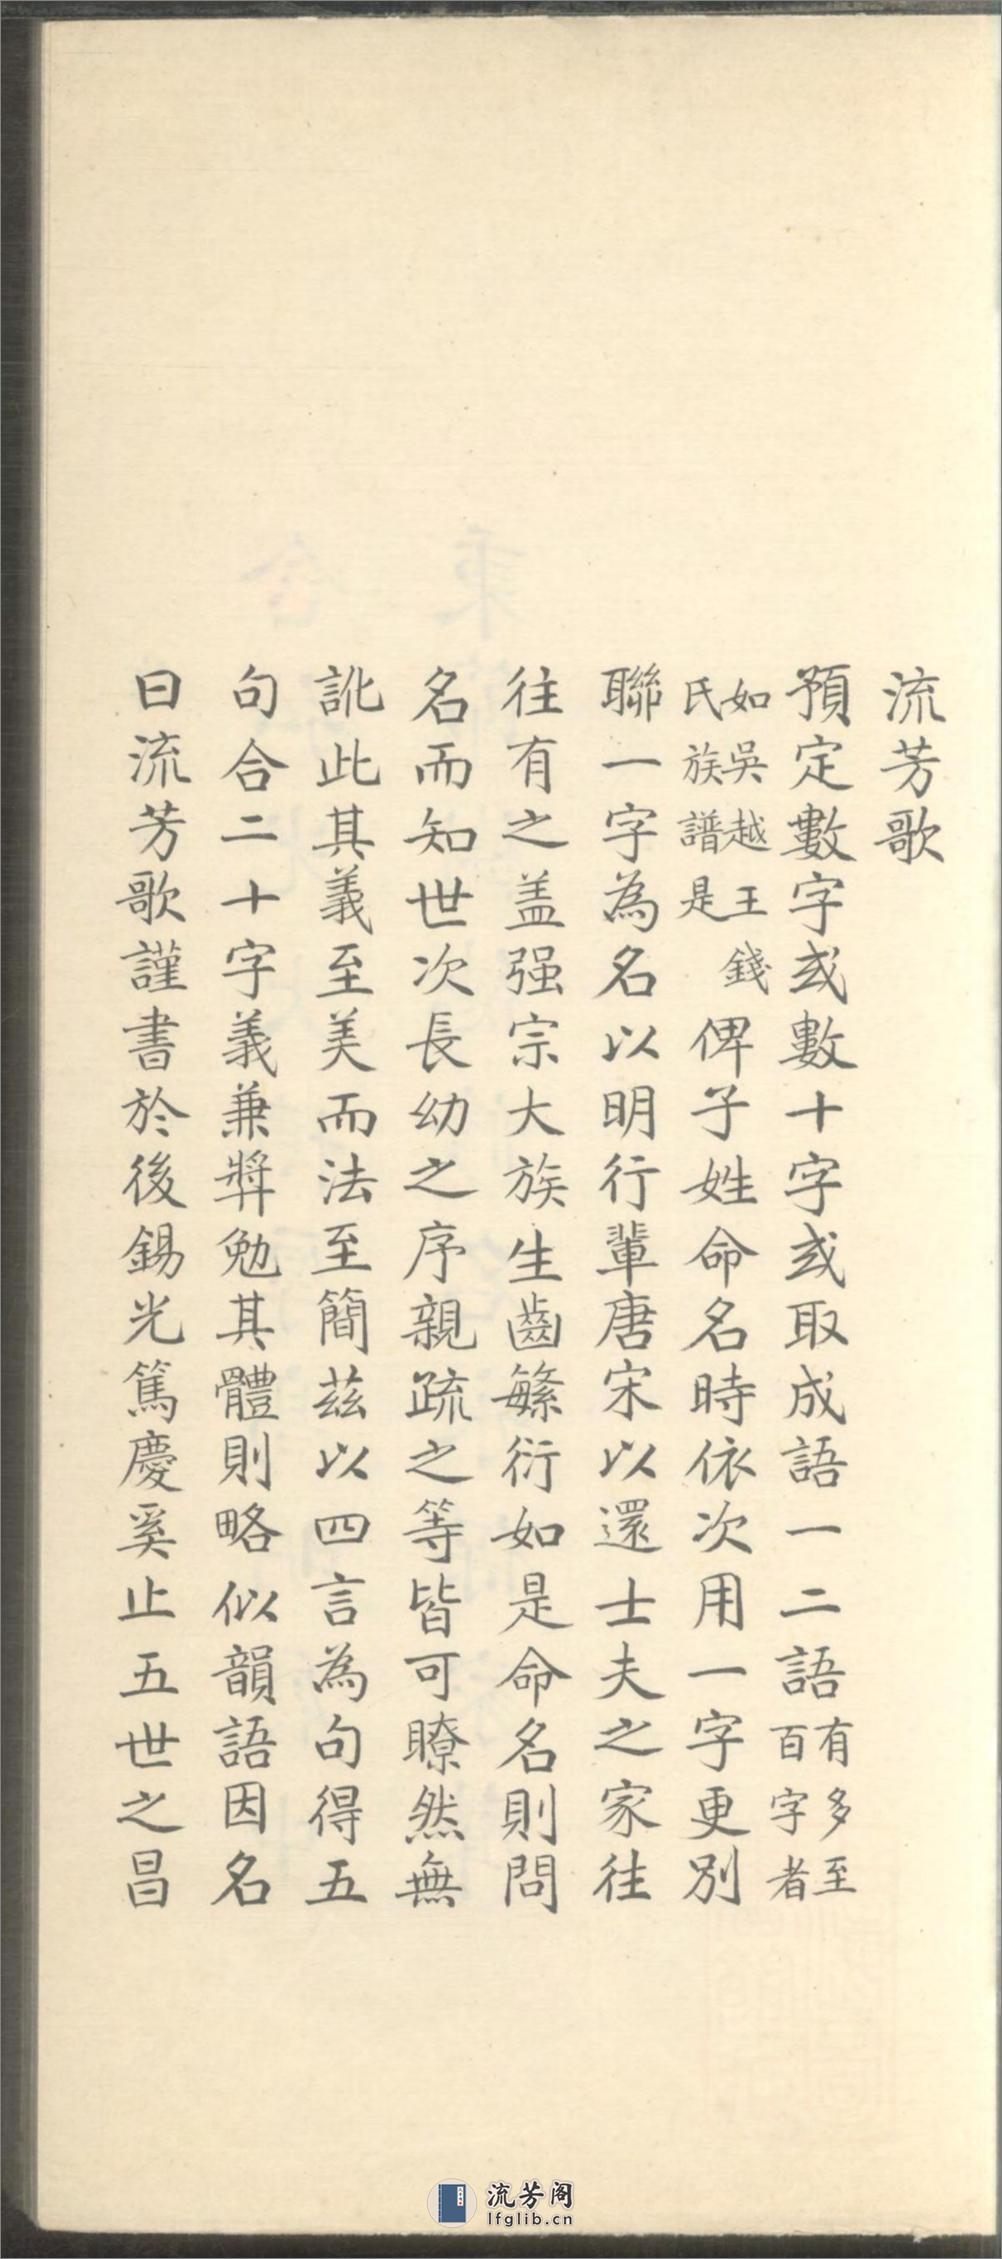 流芳歌
預定數字或數十字或取成語一二語有多至百字者
如吳越王錢氏族譜是俾子姓命名時依次用一字更別
聯一字為名以明行輩唐宋以還士夫之家往
往有之盖强宗大族生齒繁衍如是命名則問
名而知世次長幼之序親疏之等皆可瞭然無
訛此其義至美而法至簡茲以四言為句得五
句合二十字義兼獎勉其體則略似韻語因名
曰流芳歌謹書於後錫光篤慶奚止五世之昌
流芳阁
lfglib.cn